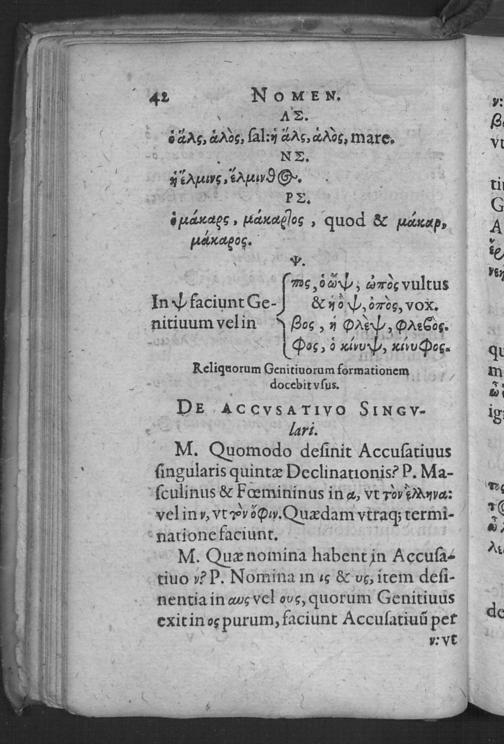 42 NOMEN.
ΛΣ.
ὁ ἅλς, ἁλὸς, sal: ἡ ἅλς, ἁλὸς, mare.
ΝΣ.
ἡ ἕλμινς, ἕλμινθος.
ΡΣ.
ὁ μάκαρς, μάκαρτος, quod & μάκαρ,
μάκαρος.
Ψ.
πος, ὁ ὢψ, ὠπὸς vultus
In ψ faciunt Ge- & ἡ ὂψ, ὀπὸς, vox.
nitiuum vel in βος, ἡ φλὲψ, φλεβὸς.
φος, ὁ κίνυψ, κίνυφος.
Reliquorum Genitiuorum formationem
docebit vsus.
DE ACCVSATIVO SINGV-
lari.
M. Quomodo desinit Accusatiuus
singularis quintæ Declinationis? P. Ma-
sculinus & Fœmininus in α, vt τὸν ἕλληνα:
vel in ν, vt τὸν ὄφιν. Quædam vtraq; termi-
natione faciunt.
M. Quæ nomina habent in Accusa-
tiuo ν? P. Nomina in ις & υς, item desi-
nentia in αυς vel ους, quorum Genitiuus
exit in ος purum, faciunt Accusatiuũ per
ν: vt